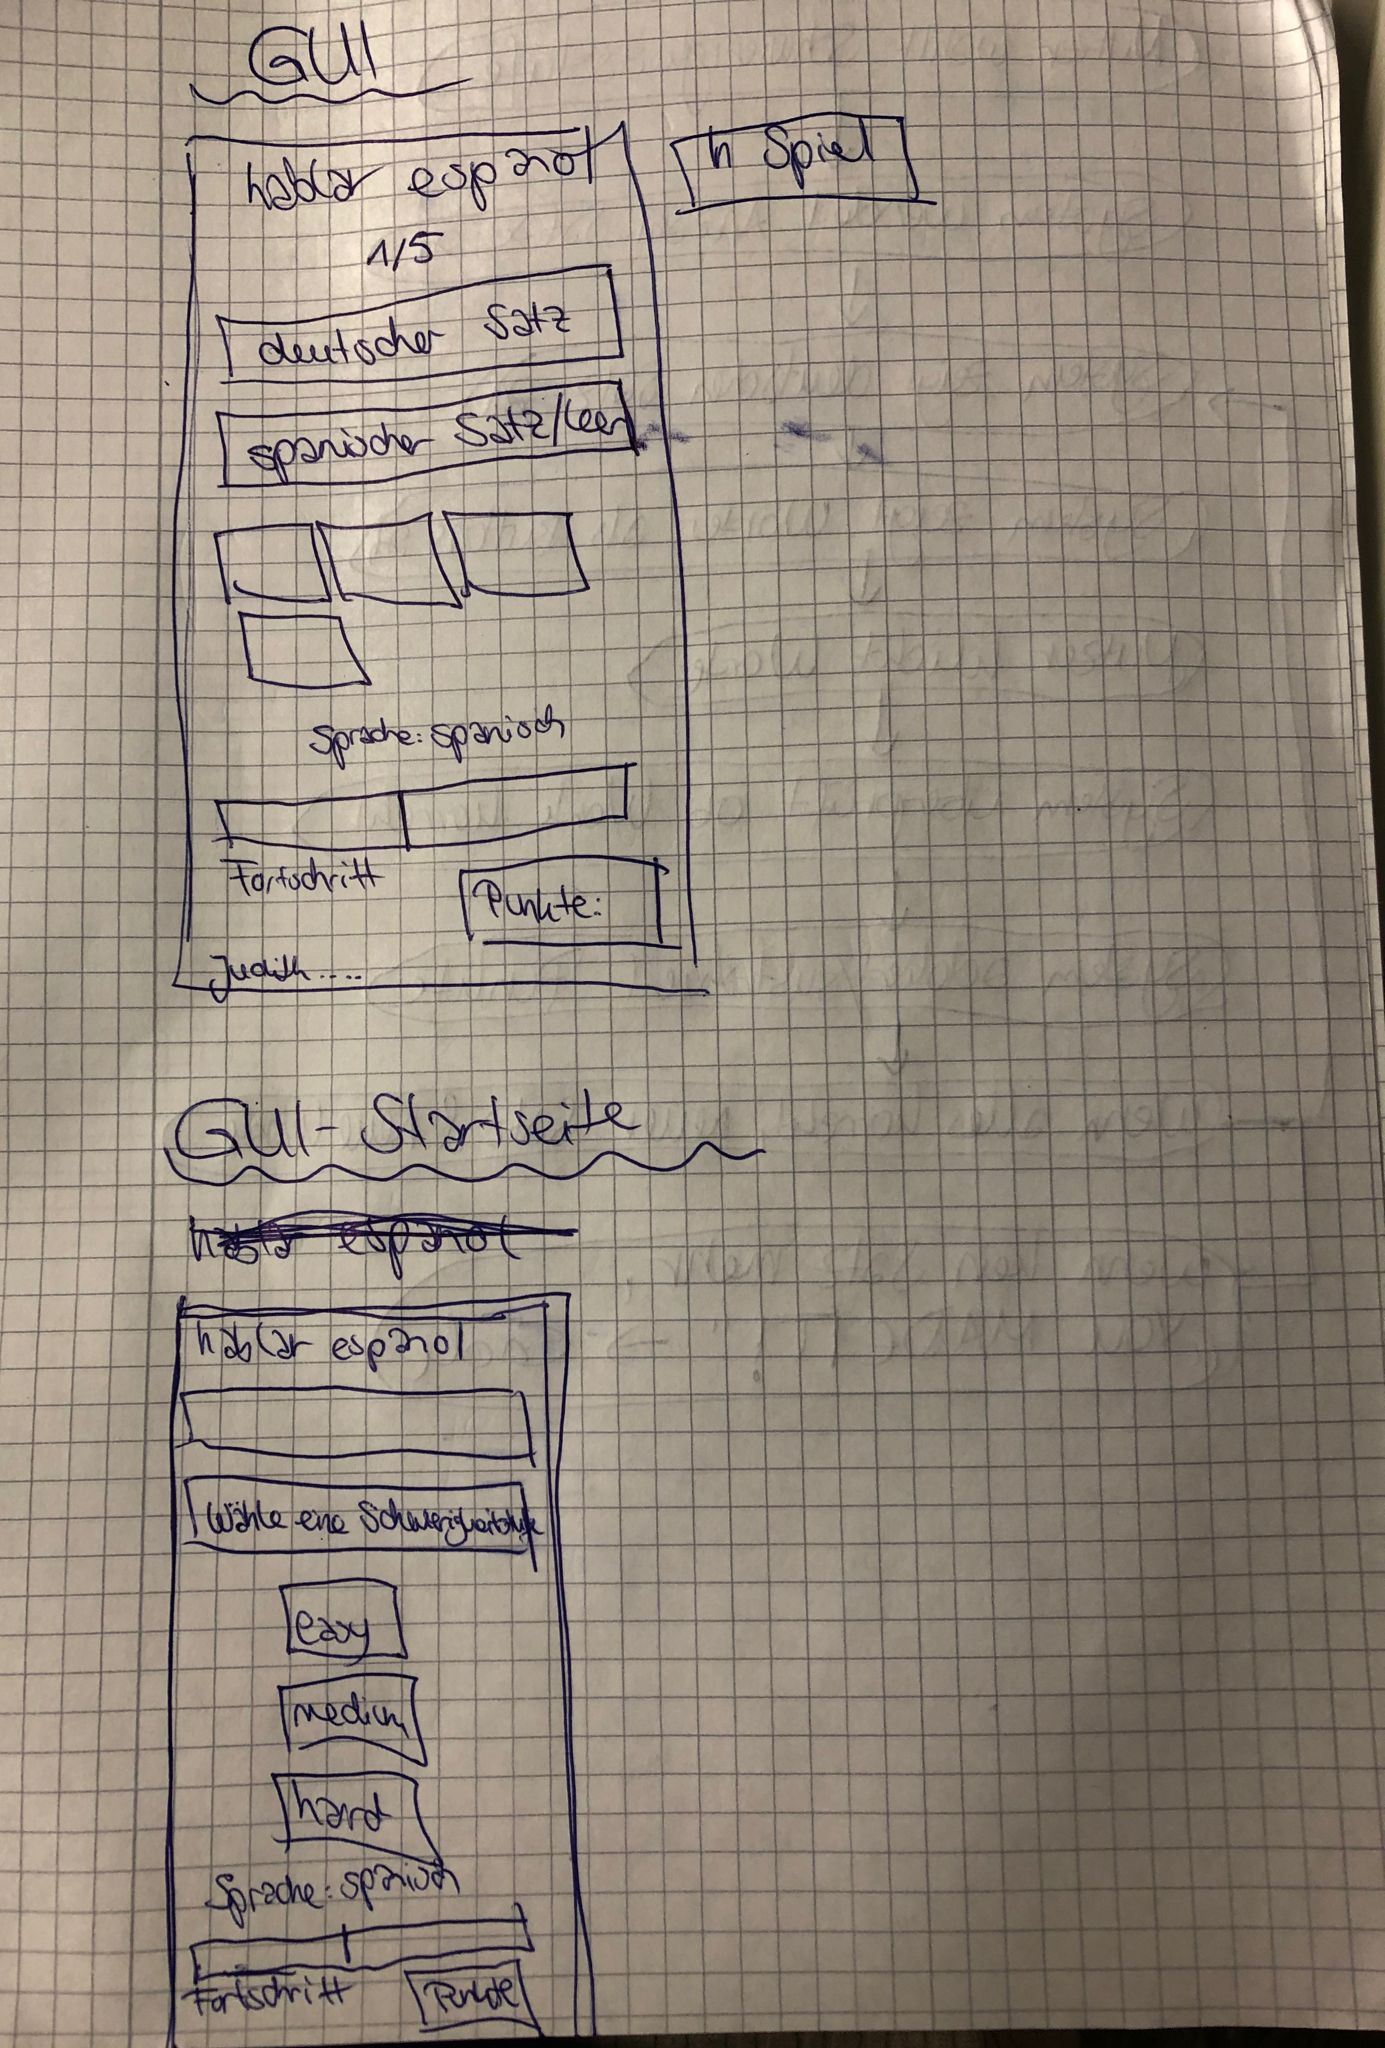 GUI
hablar espanol
h Spiel
1/5
deutscher Satz
spanischer Satz/leer
Sprache: spanisch
Fortschritt
Punkte:
Judith....
GUI-Startseite
hablar espanol
hablar espanol
Wähle eine
easy
medium
hard
Sprache: spanisch
Fortschritt
Punkte